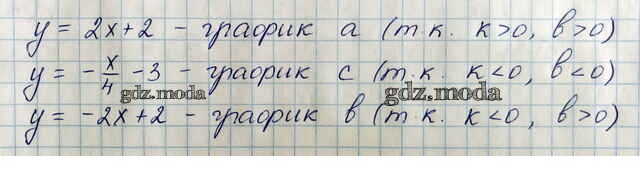 y = 2x+2 - график a (т.к. k>0, b>0)
y = -x/4 -3 - график c (т.к. k<0, b<0)
gdz.moda gdz.moda
y = -2x+2 - график b (т.к. k<0, b>0)